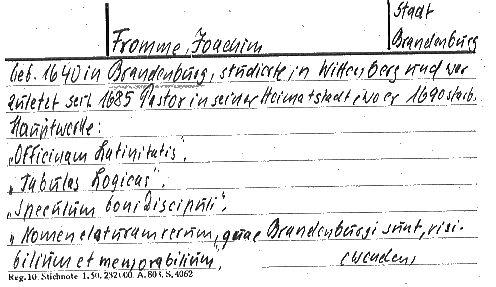 Stadt
Fromme, Joachim
Brandenburg
geb. 1640 in Brandenburg, studierte in Wittenberg und war
zuletzt seit 1685 Pastor in seiner Heimatstadt, wo er 1690 starb.
Hauptwerke:
„Officinam Latinitatis",
„Tabulas Logicas",
„Speculum boni discipuli",
„Nomenclaturam rerum, quae Brandenburgi sunt, visi-
bilium et memorabilium",
wenden,
Reg. 10. Stichnote 1. 50. A. 803. S. 4062